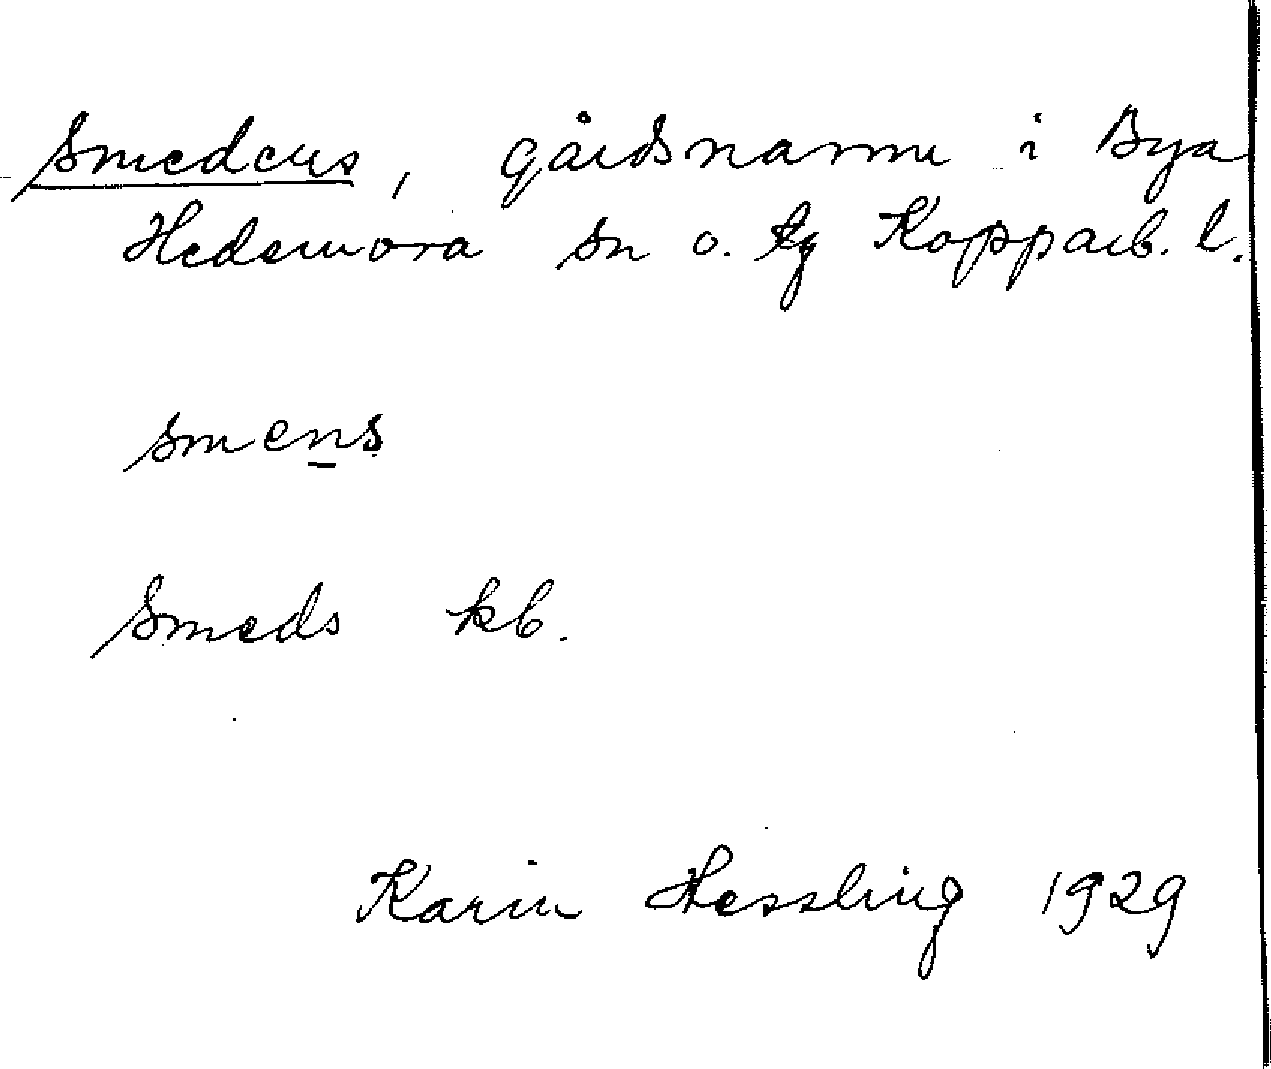 Smedens, gårdsnamn i Bya
Hedemora sn o. tg Kopparb. l.
smens
Smeds kb.
Karin Hessling 1929